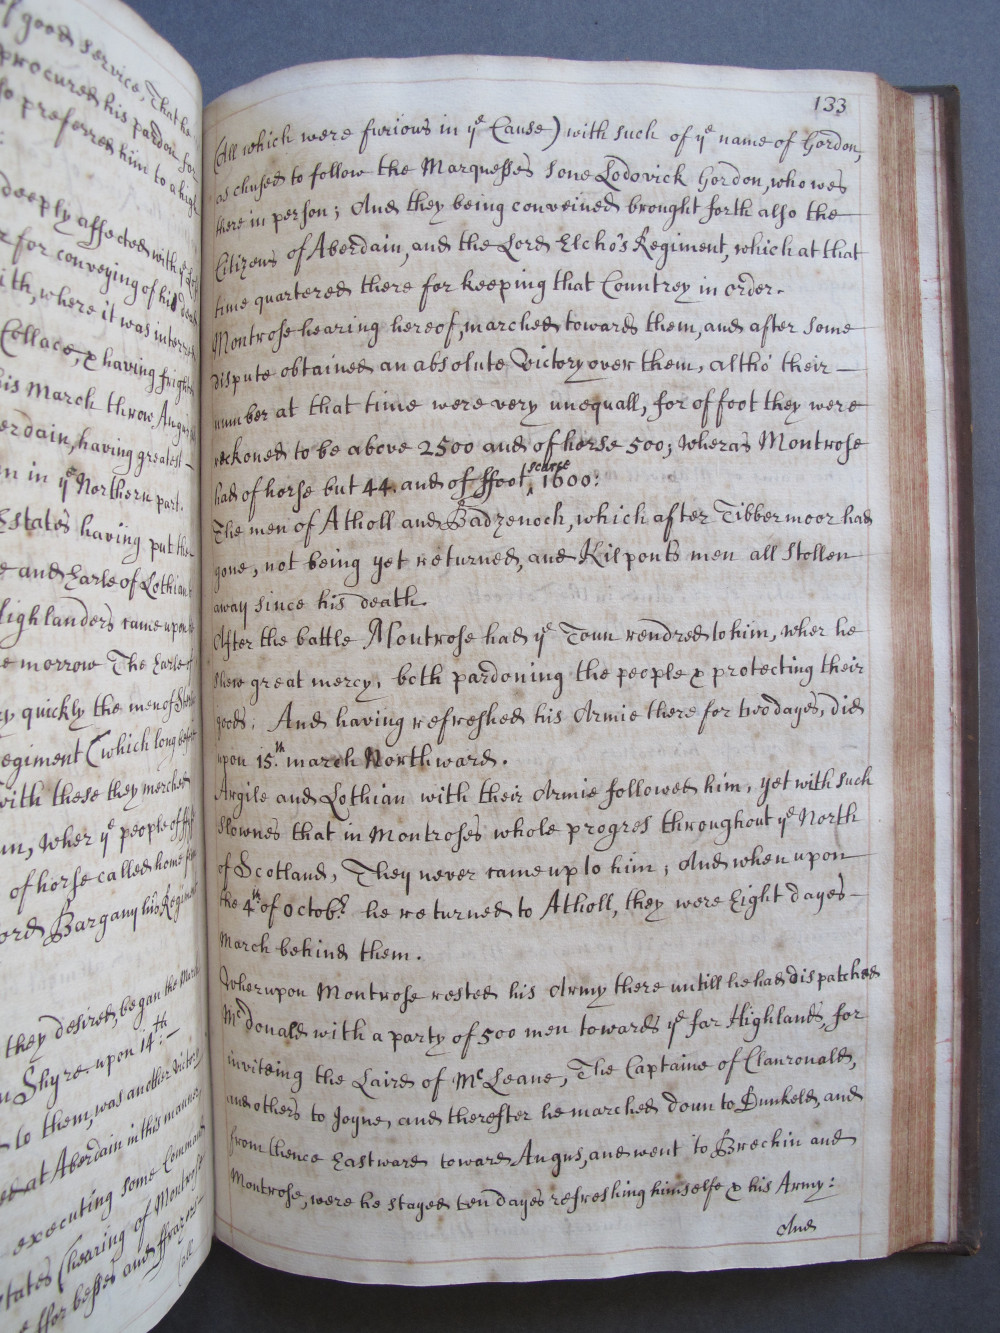 of good Service, That he
procured his pardon, for
so preferred him to a high
deeply affected with ye
for conveying of his dead
ith, where it was interred
Collace, & having
his March throw Angus
erdain, having greatest –
in ye Northern part.
Estates having put the
and Earle of Lothian
Highlanders came upon
e morrow The Earle of
ry quickly the men of
egiment (which long
with these they merched
Wher ye people of
of horse called home
ord Bargany his Regiment
they desired, began the March
Shyre upon 14th: –
to them, was another Victory
at Aberdain in this manner
executing some Command
states (hearing of Montrose
fforbesses and ffrazers
(all
133
(All which were furious in ye Cause) with such of ye name of Gordon,
as chused to follow the Marquesses sone Lodovick Gordon, who wes
there in person; And they being conveined brought forth also the
Citizens of Aberdain, and the Lord Elcho's Regiment, which at that
time quartered there for keeping that Countrey in order.
Montrose hearing hereof, marched towards them, and after some
dispute obtained an absolute Victory over them, altho' their –
number at that time were very unequall, for of foot they were
reckoned to be above 2500 and of horse 500; wheras Montrose
had of horse but 44. and of ffoot, scarse 1600:
The men of Atholl and Badzenoch, which after Tibbermoor had
gone, not being yet returned, and Kilponts men all stollen
away since his death.
After the battle Montrose had ye Toun rendred to him, wher he
shew great mercy, both pardoning the people & protecting their
goods; And having refreshed his Armie there for two dayes, did
upon 15.th march Northward.
Argile and Lothian with their Armie followed him, yet with such
slownes that in Montroses whole progres throughout ye North
of Scotland, They never came up to him; And when upon
the 4th of Octobr. he returned to Atholl, they were Eight dayes –
march behind them.
Wherupon Montrose rested his Army there untill he had dispatched
Mcdonald with a party of 500 men towards ye far Highlands, for
inviteing the Laird of McLeane, The Captaine of Clanronald,
and others to joyne, and therefter he marched doun to Dunkeld, and
from thence Eastward toward Angus, and went to Brechin and
Montrose, were he stayed ten dayes refreshing himselfe & his Army:
And